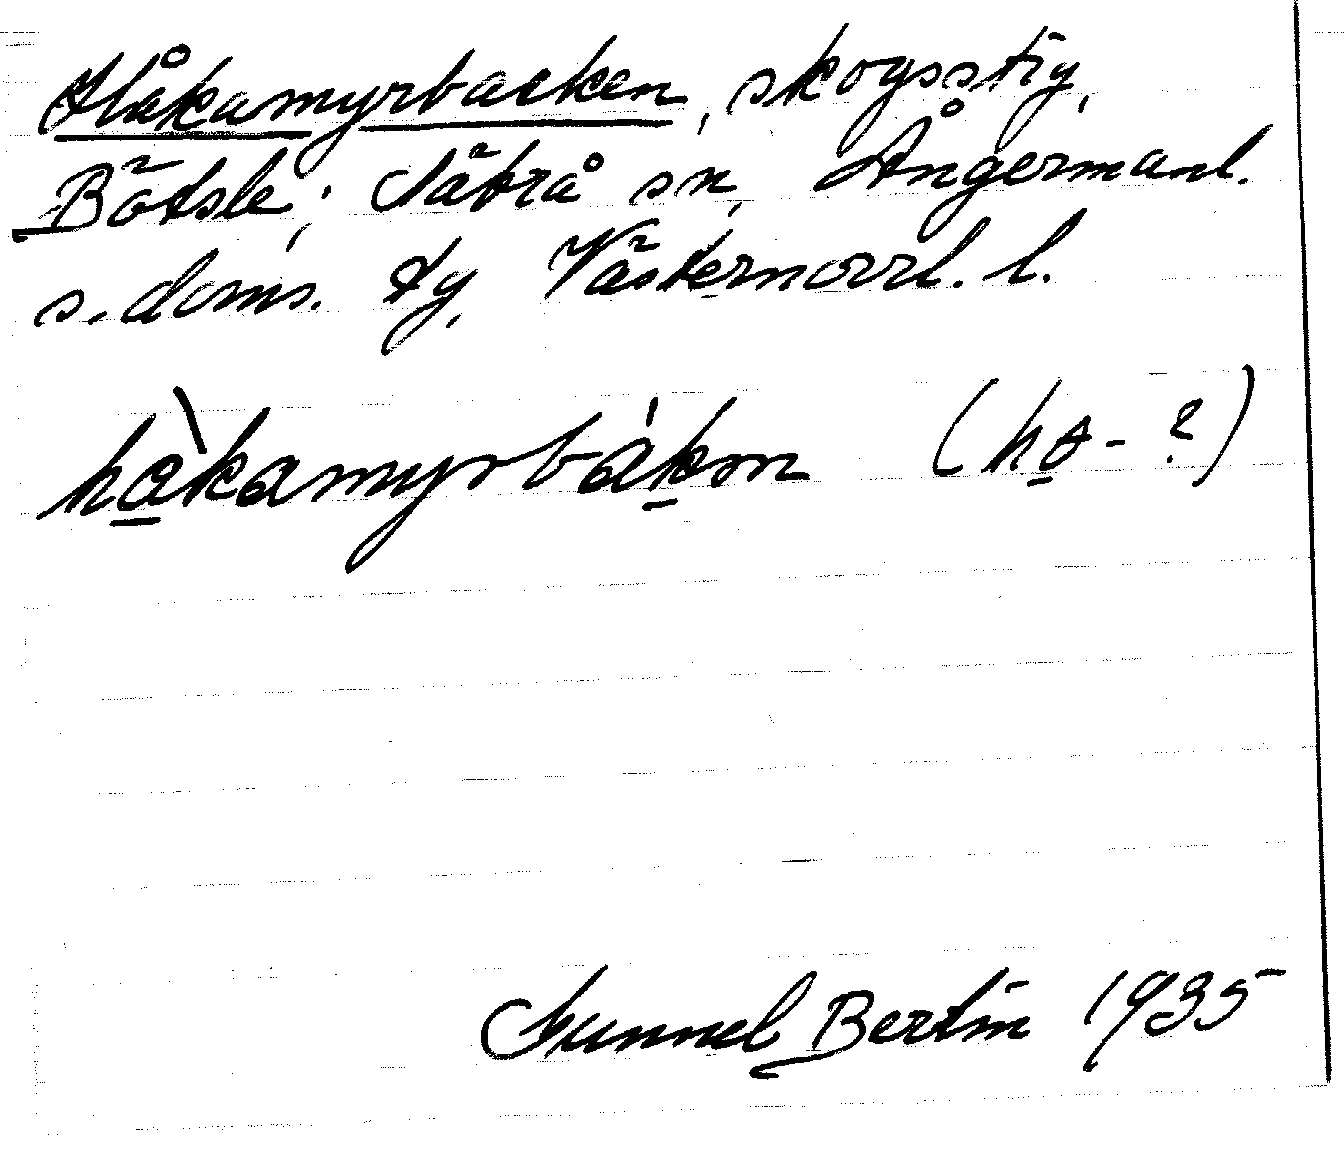 Håkamyrbacken, skogsstig,
Bötsle; Nätrå sn, Ångermanl.
s. doms. tg, Västernorrl. l.
hàkamyrbákɘn (ho- ?)
Gunnel Bertin 1935